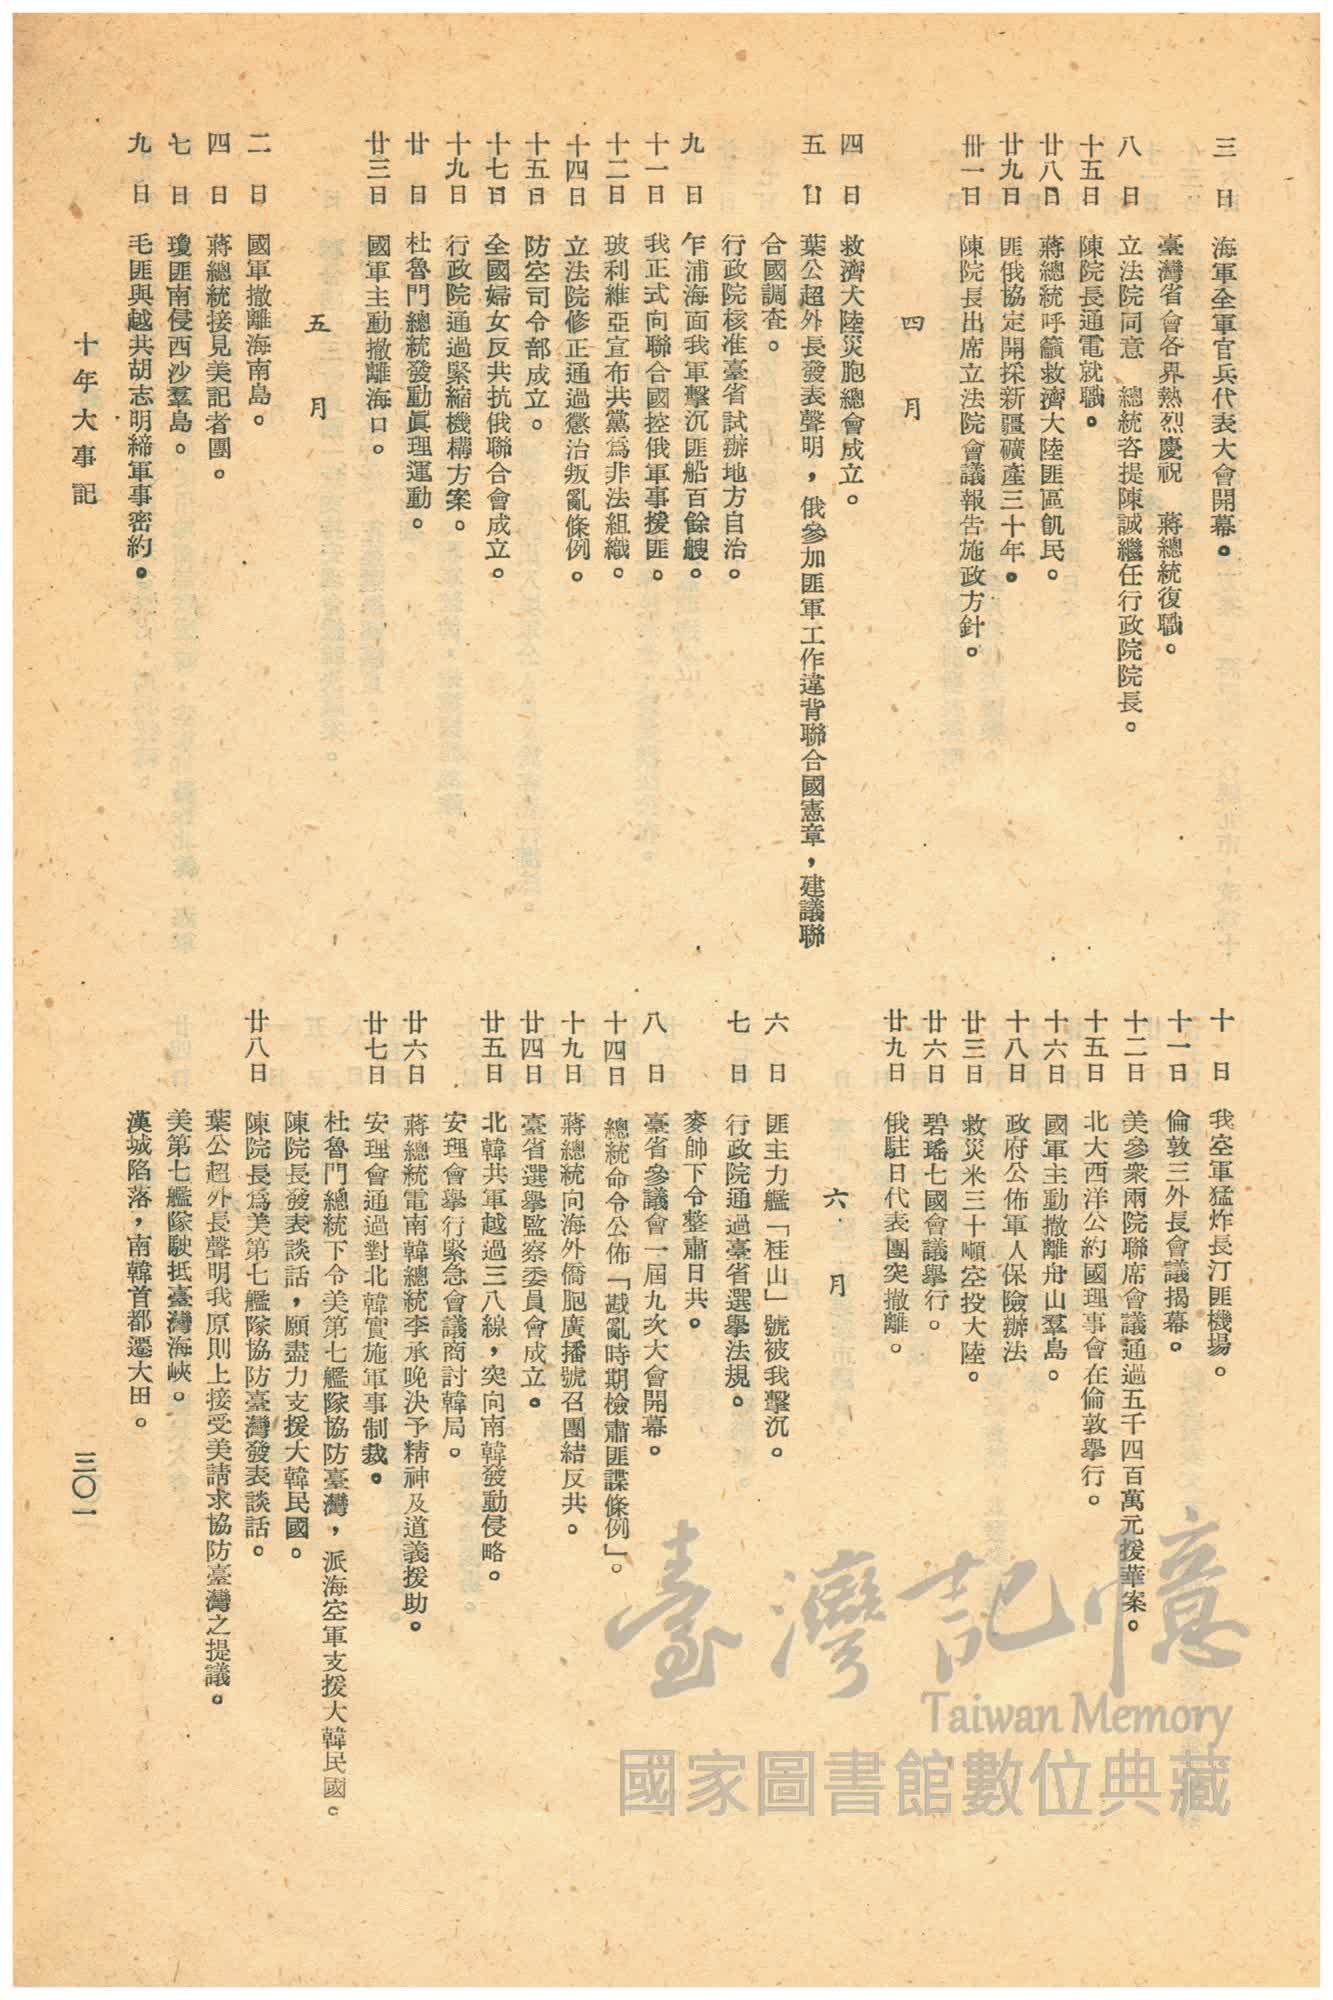 三　日　海軍全軍官兵代表大會開幕。
臺灣省會各界熱烈慶祝　蔣總統復職。
八　日　立法院同意　總統咨提陳誠繼任行政院院長。
十五日　陳院長通電就職。
廿八日　蔣總統呼籲救濟大陸匪區飢民。
廿九日　匪俄協定開採新疆礦產三十年。
卅一日　陳院長出席立法院會議報告施政方針。
四　月
四　日　救濟大陸災胞總會成立。
五　日　葉公超外長發表聲明，俄參加匪軍工作違背聯合國憲章，建議聯
合國調查。
行政院核准臺省試辦地方自治。
九　日　乍浦海面我軍擊沉匪船百餘艘。
十一日　我正式向聯合國控俄軍事援匪。
十二日　玻利維亞宣布共黨爲非法組織。
十四日　立法院修正通過懲治叛亂條例。
十五日　防空司令部成立。
十七日　全國婦女反共抗俄聯合會成立。
十九日　行政院通過緊縮機構方案。
廿　日　杜魯門總統發動眞理運動。
廿三日　國軍主動撤離海口。
五　月
二　日　國軍撤離海南島。
四　日　蔣總統接見美記者團。
七　日　瓊匪南侵西沙羣島。
九　日　毛匪與越共胡志明締軍事密約。
十年大事記
十　日　我空軍猛炸長汀匪機場。
十一日　倫敦三外長會議揭幕。
十二日　美參衆兩院聯席會議通過五千四百萬元援華案。
十五日　北大西洋公約國理事會在倫敦舉行。
十六日　國軍主動撤離舟山羣島。
十八日　政府公佈軍人保險辦法
廿三日　救災米三十噸空投大陸。
廿六日　碧瑤七國會議舉行。
廿九日　俄駐日代表團突撤離。
六　月
六　日　匪主力艦「桂山」號被我擊沉。
七　日　行政院通過臺省選舉法規。
麥帥下令整肅日共。
八　日　臺省參議會一屆九次大會開幕。
十四日　總統命令公佈「戡亂時期檢肅匪諜條例」。
十九日　蔣總統向海外僑胞廣播號召團結反共。
廿四日　臺省選舉監察委員會成立。
廿五日　北韓共軍越過三八線，突向南韓發動侵略。
安理會舉行緊急會議商討韓局。
廿六日　蔣總統電南韓總統李承晚決予精神及道義援助。
廿七日　安理會通過對北韓實施軍事制裁。
杜魯門總統下令美第七艦隊協防臺灣，派海空軍支援大韓民國。
陳院長發表談話，願盡力支援大韓民國。
廿八日　陳院長爲美第七艦隊協防臺灣發表談話。
葉公超外長聲明我原則上接受美請求協防臺灣之提議。
美第七艦隊駛抵臺灣海峽。
漢城陷落，南韓首都遷大田。
三〇一
臺灣記憶
Taiwan Memory
國家圖書館數位典藏